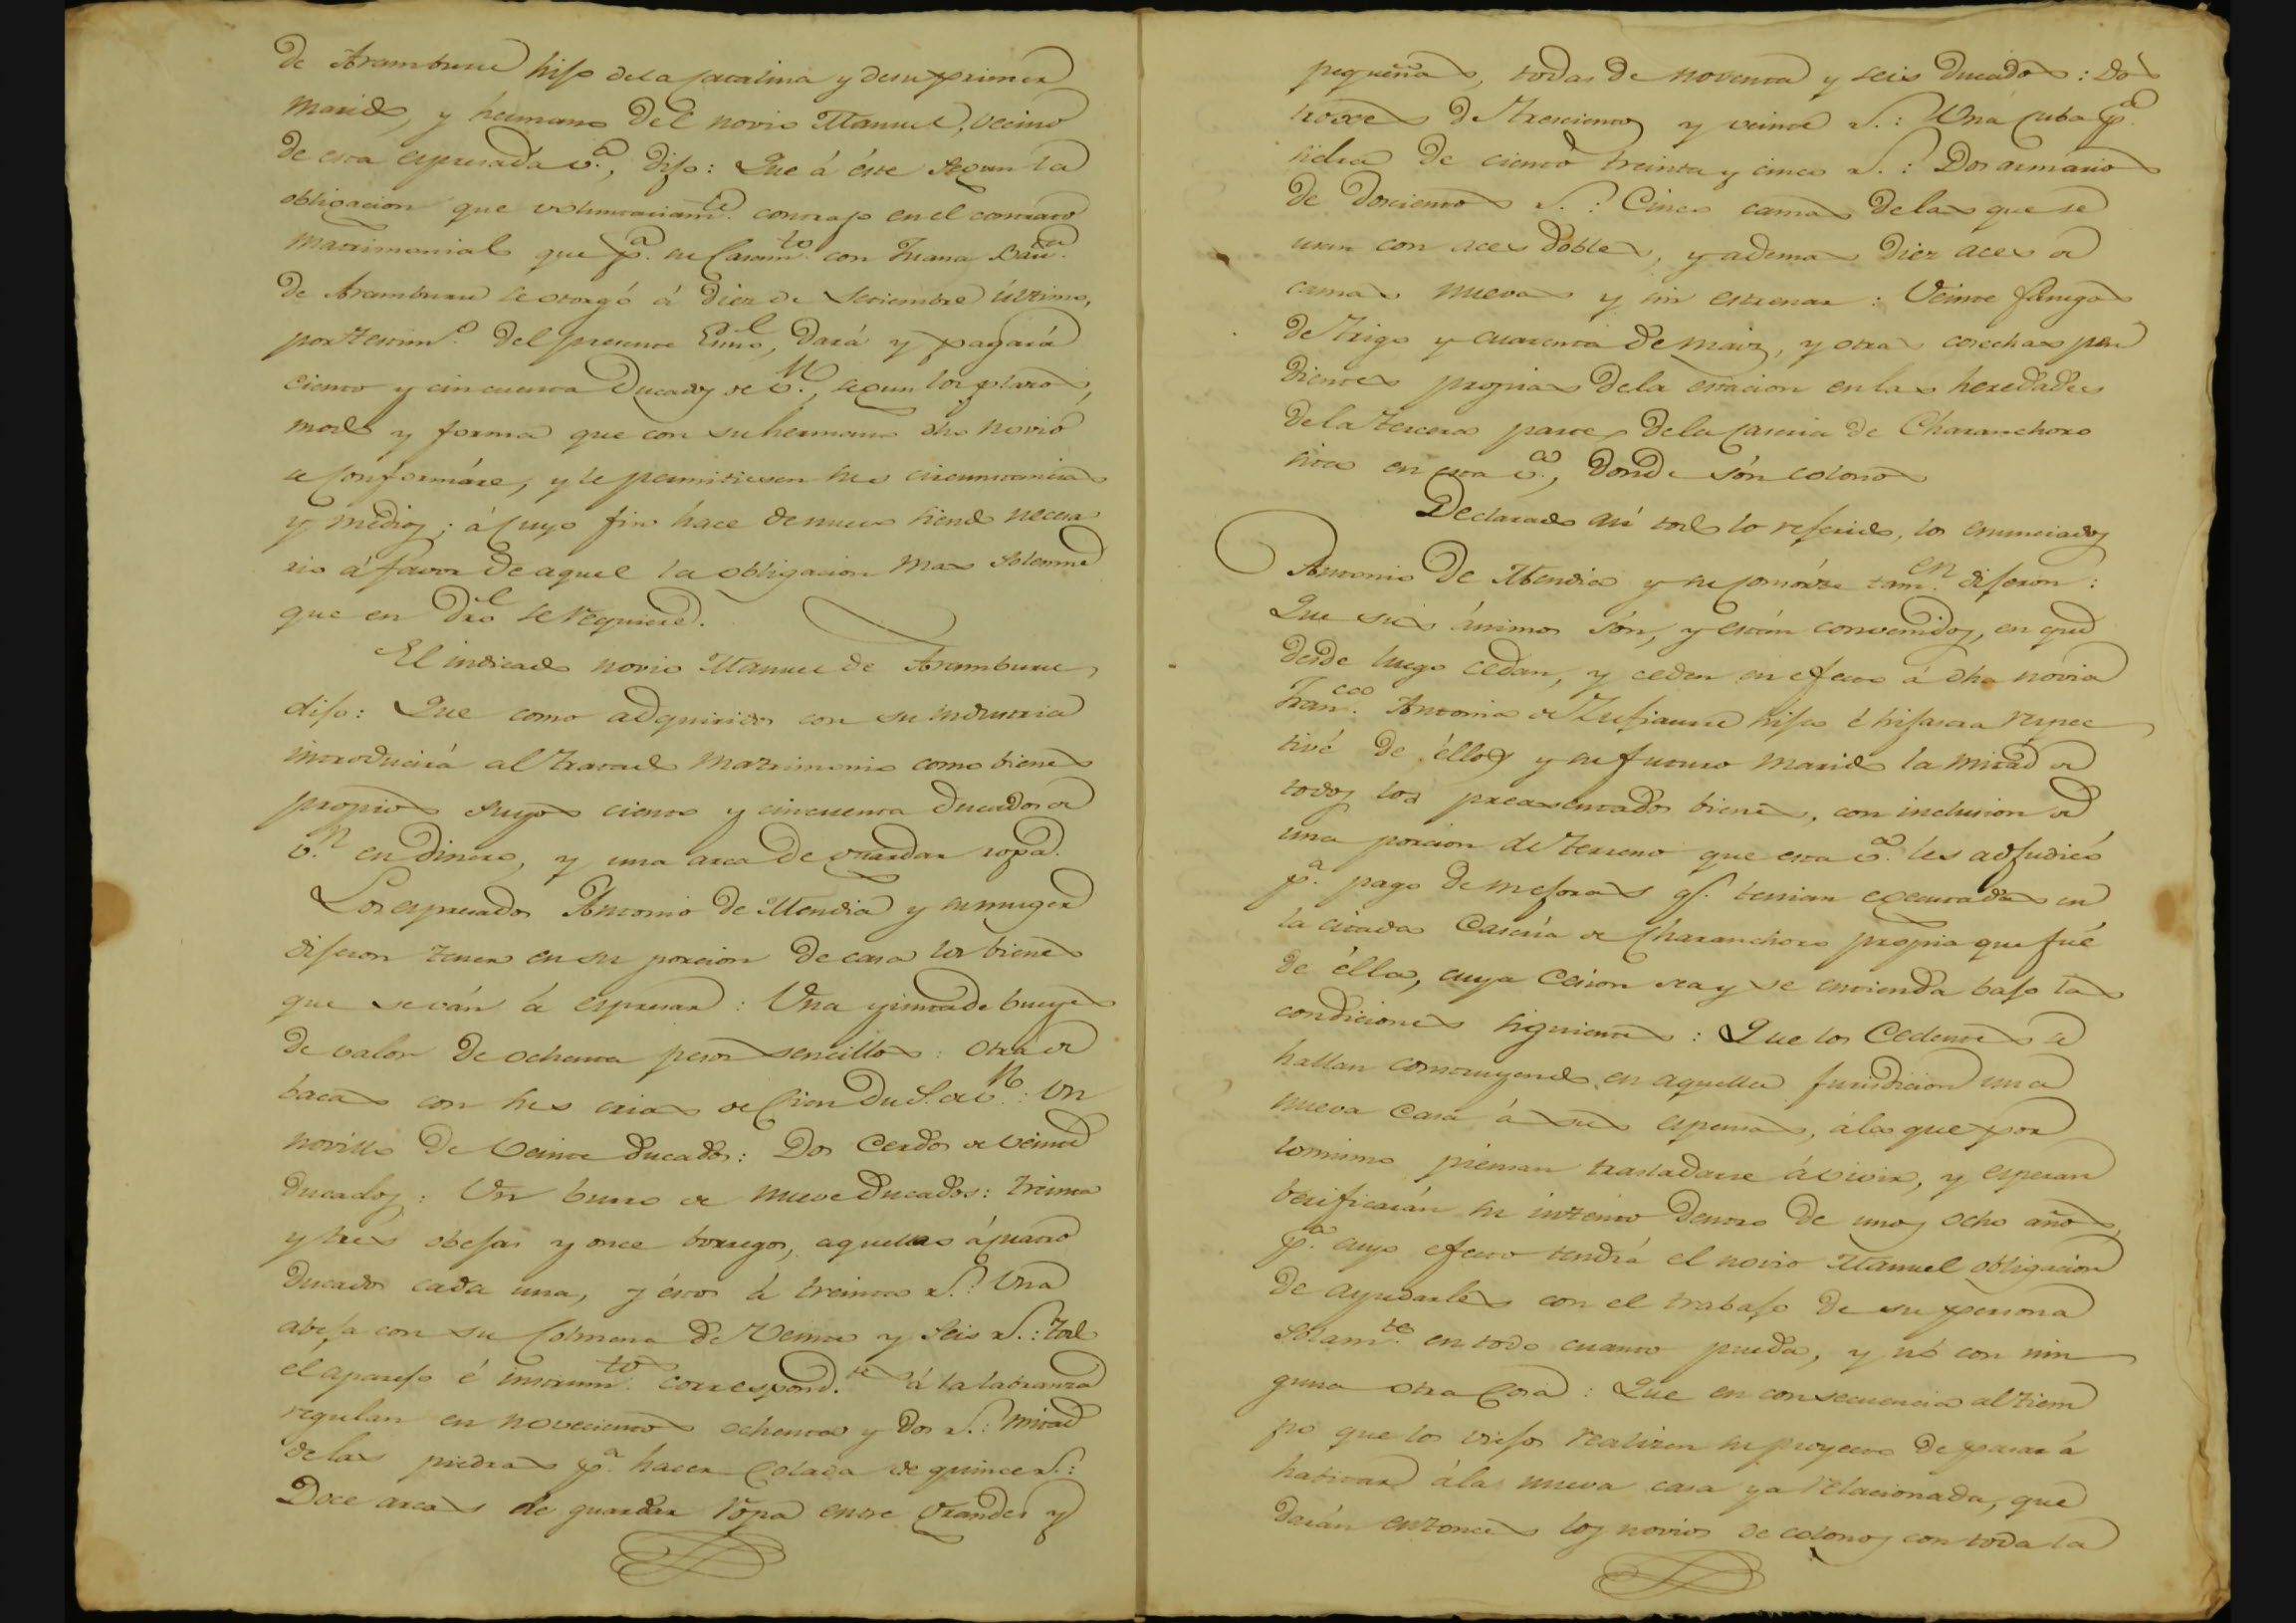 de Aramburu hijo dela Catalina y desu primer
marido, y hermano del novio Manuel, vecino
de esta espresada v.ª, dijo: Que á éste segun la
obligacion que voluntariam.te contrajo en el contrato
matrimonial que p.ª su Casam.to con Juana Bau.ta
de Aramburu se otorgó á diez de Setiembre último,
por testim.º del presente Essno, dará y pagará
ciento y cincuenta Ducados de v.n, segun los plazos,
modo y forma que con su hermano dho novio
se conformáre, y le permitiesen sus circunstancias
y medios; á cuyo fin hace denuevo siendo necesa
rio á favor de aquel la obligacion mas solemne
que en dro se requiere.
El indicado novio Manuel de Aramburu,
dijo: Que como adquiridos con su industria
introducirá al tratado Matrimonio como bienes
propios suyos ciento y cincuenta ducados de
v.n en dinero, y una arca de guardar ropa.
Los espresados Antonio de Mendia y su muger
dijeron tener en su porcion de casa los bienes
que se ván á espresar: Una yunta de bueyes
de valor de ochenta pesos sencillos: Otra de
bacas con sus crias de Cien Du.s de v.n: Un
novillo de veinte ducados: Dos Cerdos de veinte
ducados: Un burro de nueve ducados: treinta
y tres obejas y once borregos, aquellas á cuatro
ducados cada una, y éstos á treinta r.s: Una
abeja con su Colmena de veinte y seis r.s: Todo
el aparejo é instrum.tos correspond.tes á la labranza
regulan en novecientos ochenta y dos r.s: mitad
de las piedras p.ª hacer Colada de quince r.s:
Doce arcas de guardar ropa entre grandes y
pequeñas, todas de noventa y seis ducados: Dos
troxes de trescientos y veinte r.s: Una cuba p.ª
sidra de ciento treinta y cinco r.s: Dos armarios
de doscientos r.s: Cinco camas delas que se
usan con aces dobles, y ademas diez aces de
camas nuevas y sin estrenar: Veinte fanegas
de trigo y cuarenta de maiz, y otras cosechas pen
dientes propias dela estacion en las heredades
dela tercera parte dela Caseria de Charanchoro
sita en esta v.ª, donde són colonos
Declarado asi todo lo referido, los enunciados
Antonio de Mendia y su Consorte tam.en dijeron:
Que sus ánimos són, y están convenidos, en que
desde luego cedan, y ceden en efecto á dha novia
Fran.ca Antonia de Zufiaurre hija é hijastra respec
tivé de éllos y su futuro marido la mitad de
todos los preasentados bienes, con inclusion de
una porcion de terreno que esta v.ª les adjudicó
p.ª pago de mejoras q.e tenian executadas en
la citada Caseria de Charanchoro propia que fué
de élla, cuya Cesion sea y se entienda bajo las
condiciones siguientes: Que los Cedentes se
hallan construyendo en aquella jurisdicion una
nueva Casa á sus espensas, á la que por
lo mismo piensan trasladarse á vivir, y esperan
berificarán su intento dentro de unos ocho años,
p.ª cuyo efecto tendrá el novio Manuel obligacion
de ayudarles con el trabajo de su persona
solam.te en todo cuanto pueda, y nó con nin
guna otra Cosa: Que en consecuencia al tiem
po que los viejos realizen su proyecto de pasar á
habitar á la nueva casa ya relacionada, que
darán entonces los novios de colonos con toda la